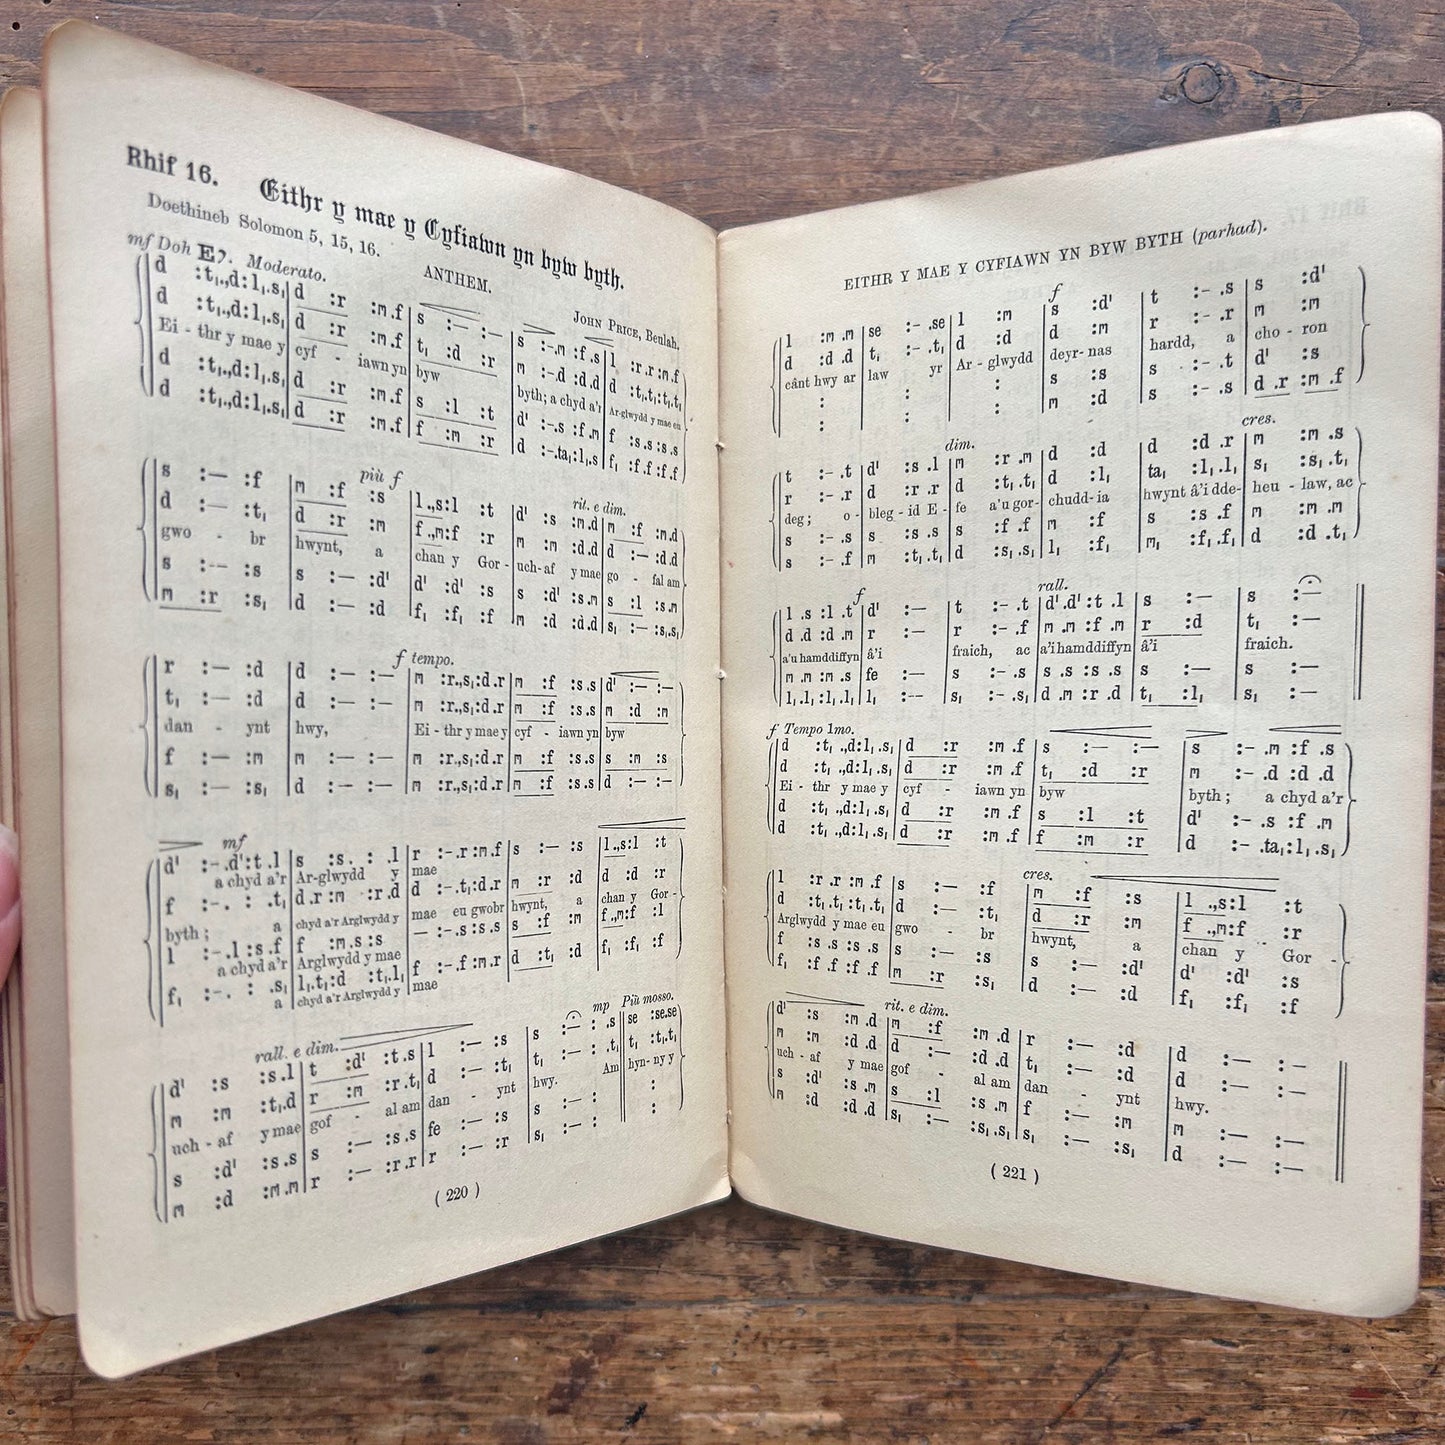 Rhif 16. Eithr y mae y Cyfiawn yn byw byth.
Doethineb Solomon 5, 15, 16.
ANTHEM.
JOHN PRICE, Beulah.
mf Doh E♭. Moderato.
d :t₁.,d:l₁.s₁|d :r :m.f|s :— :—|s :—.m :f.s|l :r.r:m.f
d :t₁.,d:l₁.s₁|d :r :m.f|t₁ :d :r|m :—.d :d.d|d :t₁.t₁:t₁.t₁
Ei - thr y mae y cyf - iawn yn byw byth; a chyd a'r Arglwydd y mae eu
d :t₁.,d:l₁.s₁|d :r :m.f|s :l :t|d' :—.s :f.m|f :s.s :s.s
d :t₁.,d:l₁.s₁|d :r :m.f|f :m :r|d :—.ta₁:l₁.s|f₁ :f.f :f.f
più f rit. e dim.
s :— :f|m :f :s|l .,s:l :t|d' :s :m.d|m :f :m.d
d :— :t₁|d :r :m|f .,m:f :r|m :m :d.d|d :— :d.d
gwo - br hwynt, a chan y Gor - uch-af y mae go - fal am
s :— :s|s :— :d'|d' :d' :s|s :d' :s.m|s :l :s.m
m :r :s₁|d :— :d|f₁ :f₁ :f|m :d :d.d|s₁ :— :s₁.s₁
f tempo.
r :— :d|d :— :—|m :r.,s₁:d.r|m :f :s.s|d' :— :—
t₁ :— :d|d :— :—|m :r.,s₁:d.r|m :f :s.s|m :d :m
dan - ynt hwy, Ei - thr y mae y cyf - iawn yn byw
f :— :m|m :— :—|m :r.,s₁:d.r|m :f :s.s|s :m :s
s₁ :— :s₁|d :— :—|m :r.,s₁:d.r|m :f :s.s|d :— :—
mf
d' :—.d':t .l|s :s. : .l|r :—.r:m.f|s :— :s|l .,s:l :t
a chyd a'r Ar-glwydd y mae
f :—. : .t₁|d.r :m :r.d|d :—.t₁:d.r|m :r :d|d :d :r
byth; a chyd a'r Arglwydd y mae eu gwobr hwynt, a chan y Gor -
l :—.l :s.f|f :m.s:s|— :—.s :s.s|s :f :m|f .,m:f :l
a chyd a'r Arglwydd y mae
f₁ :—. : .s₁|l₁.t₁:d :t₁.l₁|f :—.f :m.r|d :t₁ :d|f₁ :f₁ :f
a chyd a'r Arglwydd y mae
rall. e dim. mp Più mosso.
d' :s :s.l|t :d' :t.s|l :— :s|s :— : .s|se :se.se
m :m :t₁.d|r :m :r.t₁|d :— :t₁|t₁ :— : .t₁|t₁ :t₁.t₁
uch - af y mae gof - al am dan - ynt hwy. Am hyn-ny y
s :d' :s.s|s :— :s.s|fe :— :s|s :— :| :
m :d :m.m|r :— :r.r|r :— :r|s₁ :— :| :
( 220 )
EITHR Y MAE Y CYFIAWN YN BYW BYTH (parhad).
f
l :m .m|se :— .se|l :m|s :d'|t :— .s|s :d'
d :d .d|t₁ :— .t₁|d :d|d :m|r :— .r|m :m
cânt hwy ar law yr Ar - glwydd deyr - nas hardd, a cho - ron
:| :| :|s :s|s :— .t|d' :s
:| :| :|m :d|s :— .s|d .r :m .f
dim. cres.
t :— .t|d' :s .l|m :r .m|d :d|d :d .r|m :m .s
r :— .r|d :r .r|d :t₁ .t₁|d :l₁|ta₁ :l₁ .l₁|s₁ :s₁ .t₁
deg; o- bleg - id E - fe a'u gor- chudd - ia hwynt â'i dde- heu - law, ac
s :— .s|s :s .s|s :f .f|m :f|s :s .f|m :m .m
s :— .f|m :t₁.t₁|d :s₁ .s₁|l₁ :f₁|m₁ :f₁ .f₁|d :d .t₁
f rall.
l .s :l .t|d' :—|t :— .t|d'.d':t .l|s :—|s :—
d .d :d .m|r :—|r :— .f|m .m :f .m|r :d|t₁ :—
a'u hamddiffyn â'i fraich, ac a'i hamddiffyn â'i fraich.
m .m :m .s|fe :—|s :— .s|s .s :s .s|s :—|s :—
l₁.l₁:l₁.l₁|l₁ :—|s₁ :— .s₁|d .m :r .d|t₁ :l₁|s₁ :—
f Tempo 1mo.
d :t₁ .,d:l₁ .s₁|d :r :m .f|s :— :—|s :— .m :f .s
d :t₁ .,d:l₁ .s₁|d :r :m .f|t₁ :d :r|m :— .d :d .d
Ei - thr y mae y cyf - iawn yn byw byth; a chyd a'r
d :t₁ .,d:l₁ .s₁|d :r :m .f|s :l :t|d' :— .s :f .m
d :t₁ .,d:l₁ .s₁|d :r :m .f|f :m :r|d :— .ta₁:l₁ .s₁
cres.
l :r .r :m .f|s :— :f|m :f :s|l .,s:l :t
d :t₁ .t₁ :t₁ .t₁|d :— :t₁|d :r :m|f .,m:f :r
Arglwydd y mae eu gwo - br hwynt, a chan y Gor -
f :s .s :s .s|s :— :s|s :— :d'|d' :d' :s
f₁ :f .f :f .f|m :r :s₁|d :— :d|f₁ :f₁ :f
rit. e dim.
d' :s :m .d|m :f :m .d|r :— :d|d :— :—
m :m :d .d|d :— :d .d|t₁ :— :d|d :— :—
uch - af y mae gof - al am dan - ynt hwy.
s :d' :s .m|s :l :s .m|f :— :m|m :— :—
m :d :d .d|s₁ :— :s₁.s₁|s₁ :— :s₁|d :— :—
( 221 )